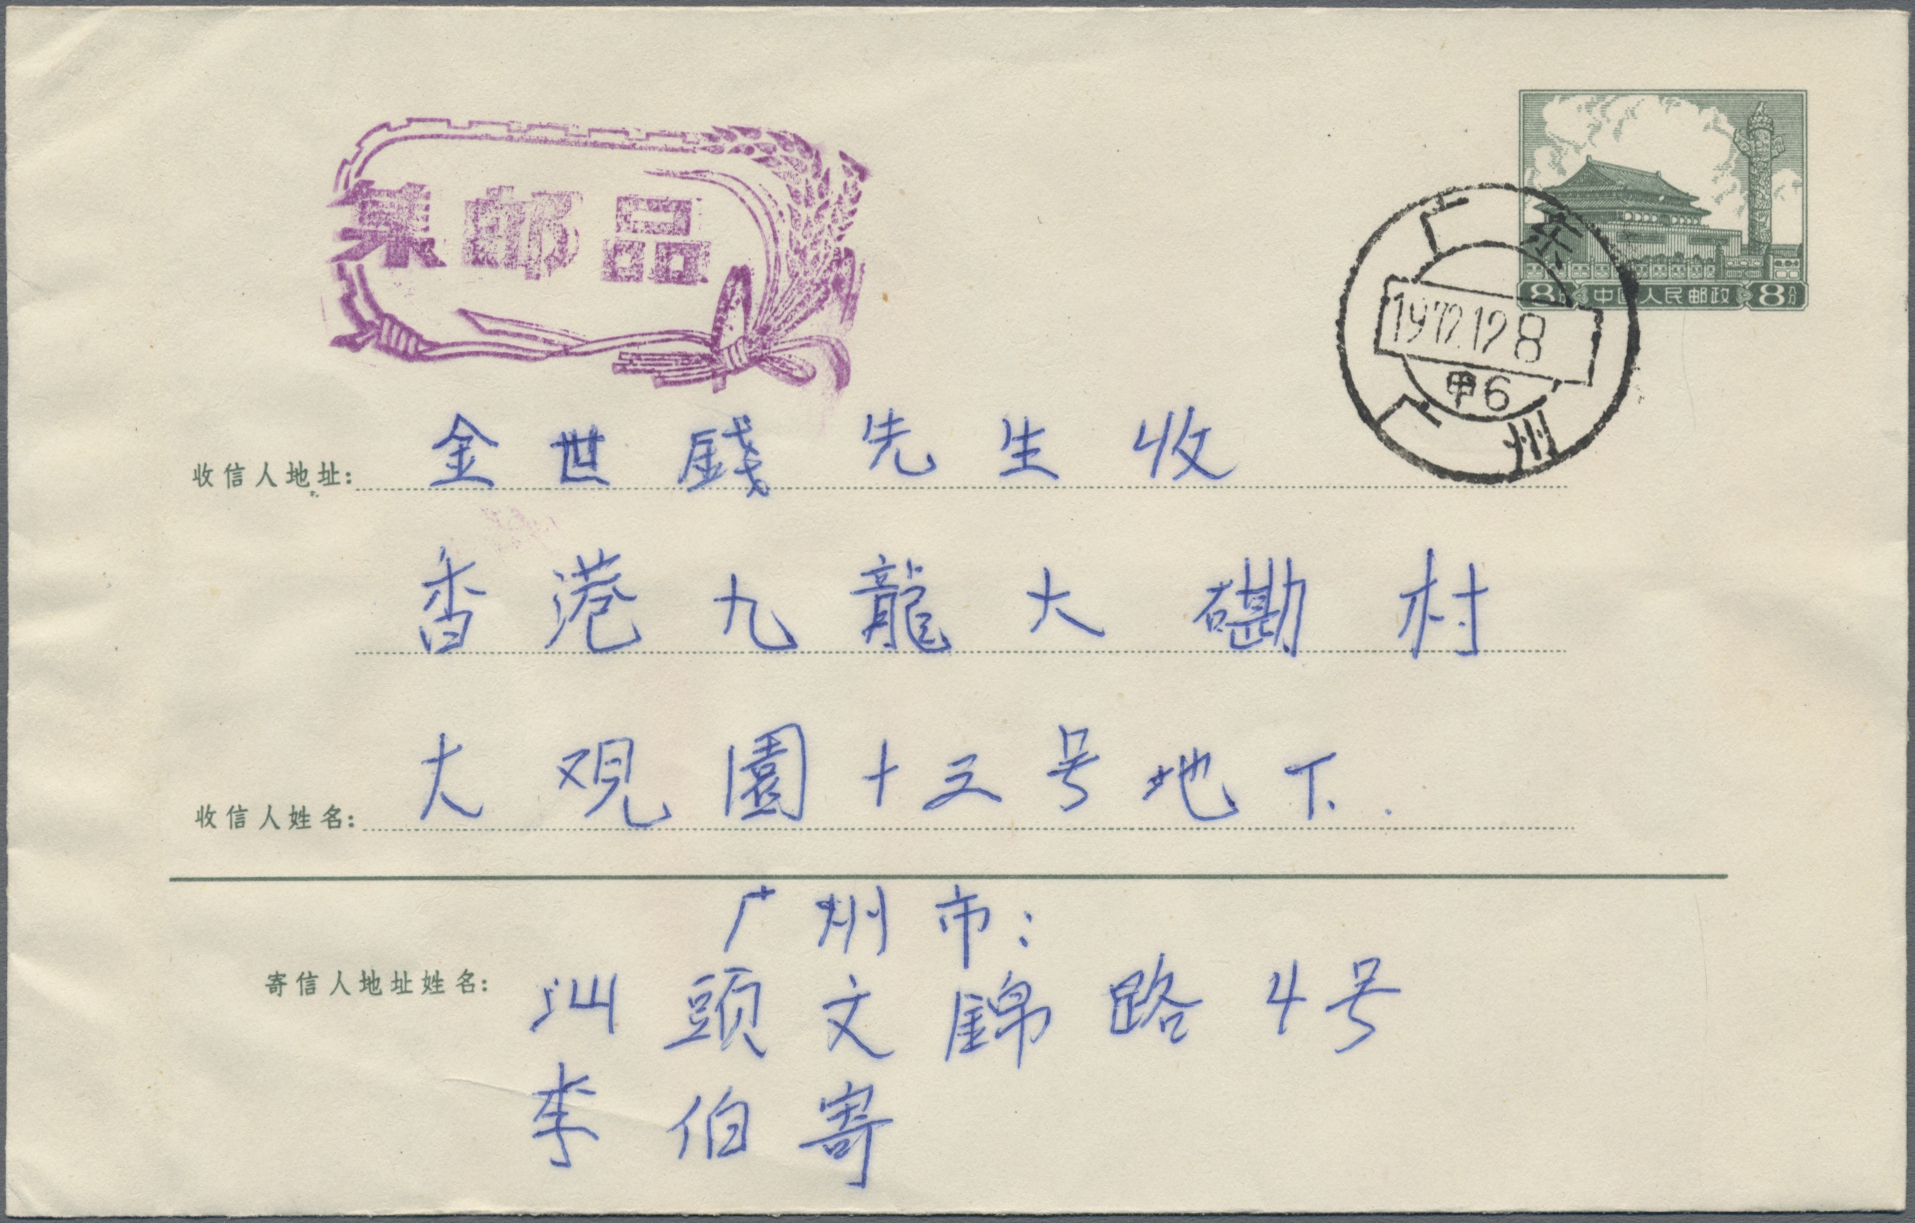 集邮品
8分 中国人民邮政 8分
广东
1972.12.8
甲6
广州
金世錢先生收
收信人地址:
香港九龍大磡村
大观園十三号地下.
收信人姓名:
广州市:
寄信人地址姓名:
汕頭文錦路4号
李伯寄